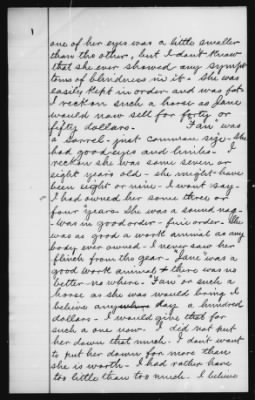 1
one of her eyes was a little smaller
than the other, but I dont know
that she ever showed any symp
toms of blindness in it. She was
easily kept in order and was fat.
I reckon such a horse as Jane
would now sell for forty or
fifty dollars. "Fan" was
a sorrel - just common size - She
had good eyes and limbs. I
reckon she was some seven or
eight years old - she might have
been eight or nine - I wont say.
I had owned her some three or
four years. She was a sound nag -
was in good order - fair order. She
was as good a work animal as any
body ever owned - I never saw her
flinch from the gear. "Jane" was a
good work animal & there was no
better no where. "Fan" or such a
horse as she was would bring I
believe any day a hundred
dollars - I would give that for
such a one now. I did not put
her down that much. I dont want
to put her down for more than
she is worth. I had rather have
too little than too much. I believe